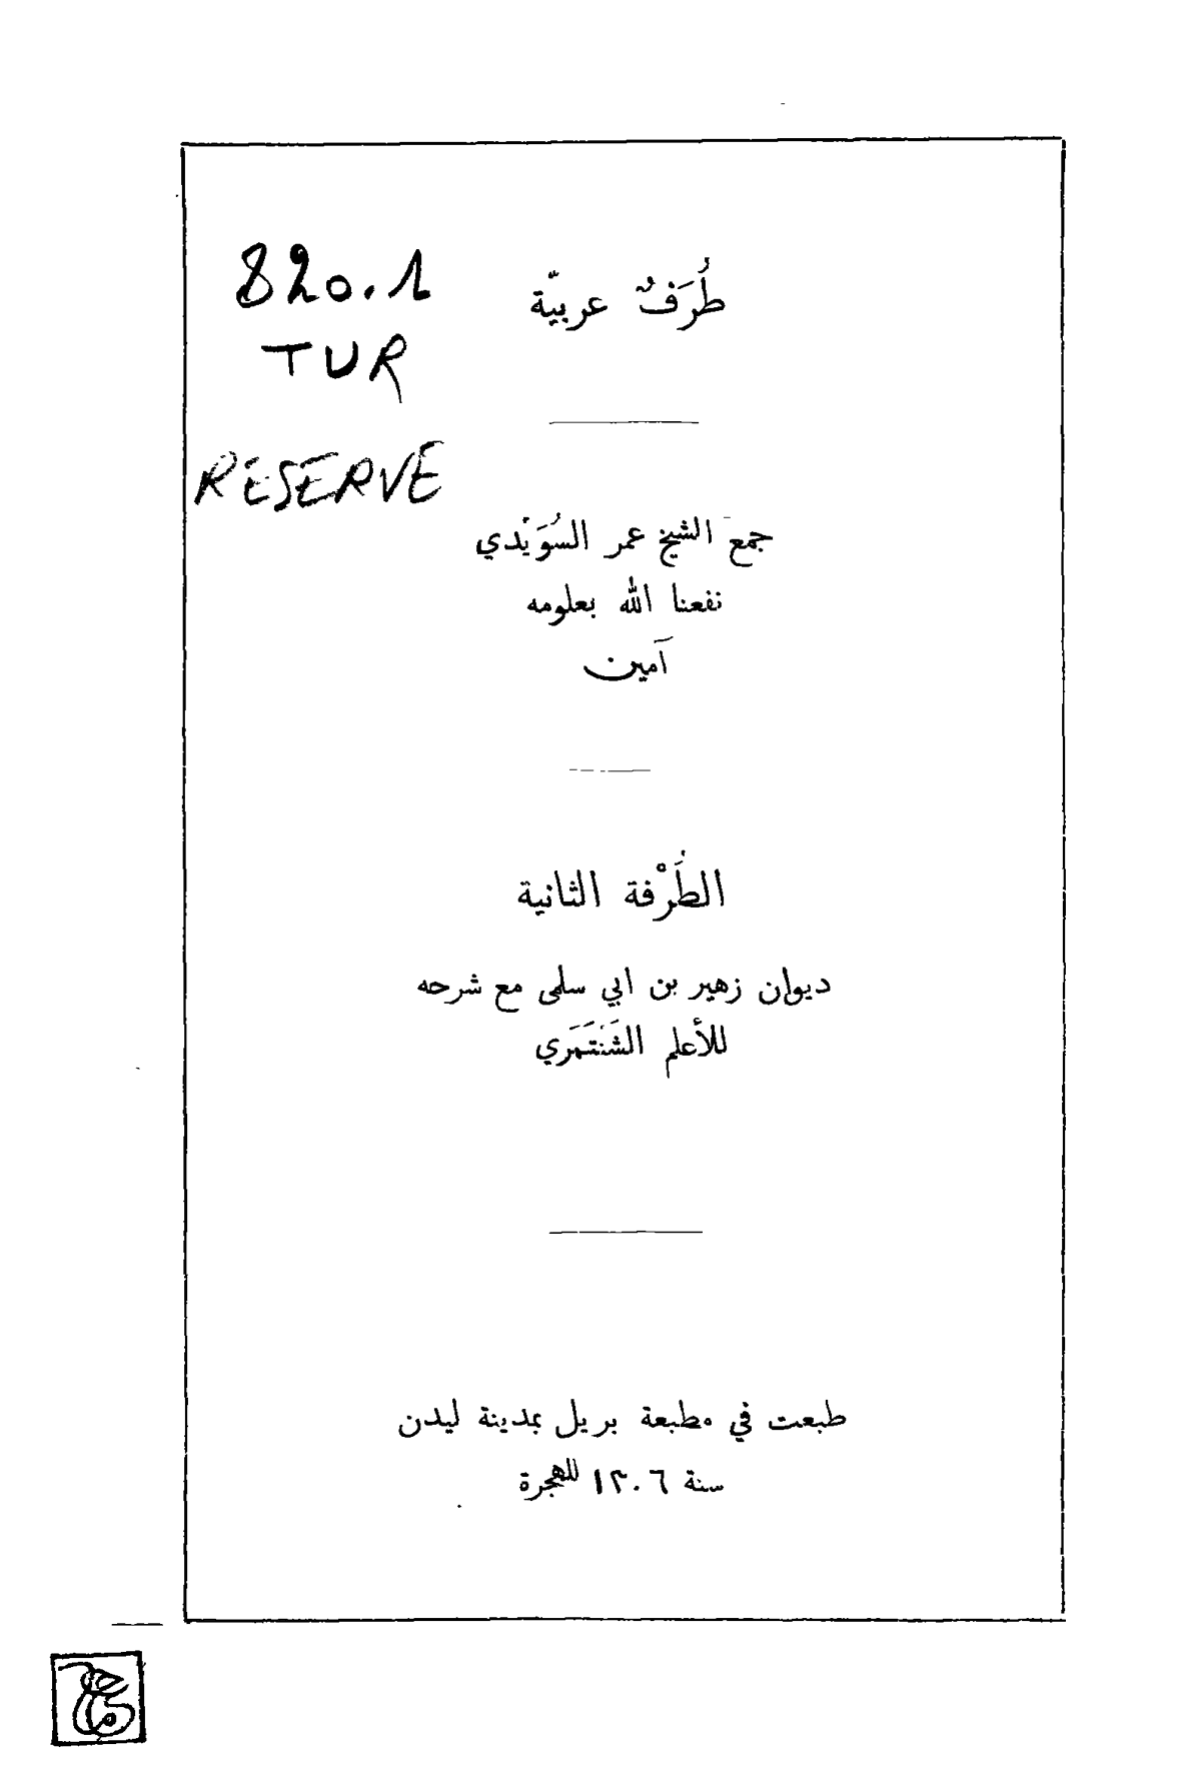 820.1
TUR
RESERVE
طُرَفٌ عربيّة
جمعَ الشيخ عمر السُوَيْدي
نفعنا الله بعلومه
آمين
الطُرْفة الثانية
ديوان زهير بن ابي سلمى مع شرحه
للأعلم الشَنْتَمَري
طبعت في مطبعة بريل بمدينة ليدن
سنة ١٣٠٦ للهجرة